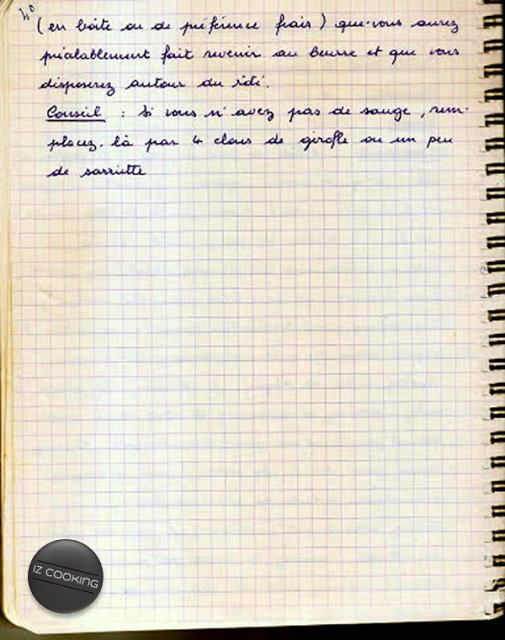 40
(en boîte ou de préférence frais) que vous aurez
préalablement fait revenir au beurre et que vous
disposerez autour du rôti.
Conseil : Si vous n'avez pas de sauge, rem-
placez-là par 4 clous de girofle ou un peu
de sarriette
IZ COOKING